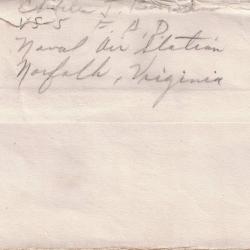 VS-5 F. A. D.
Naval Air Station
Norfolk, Virginia